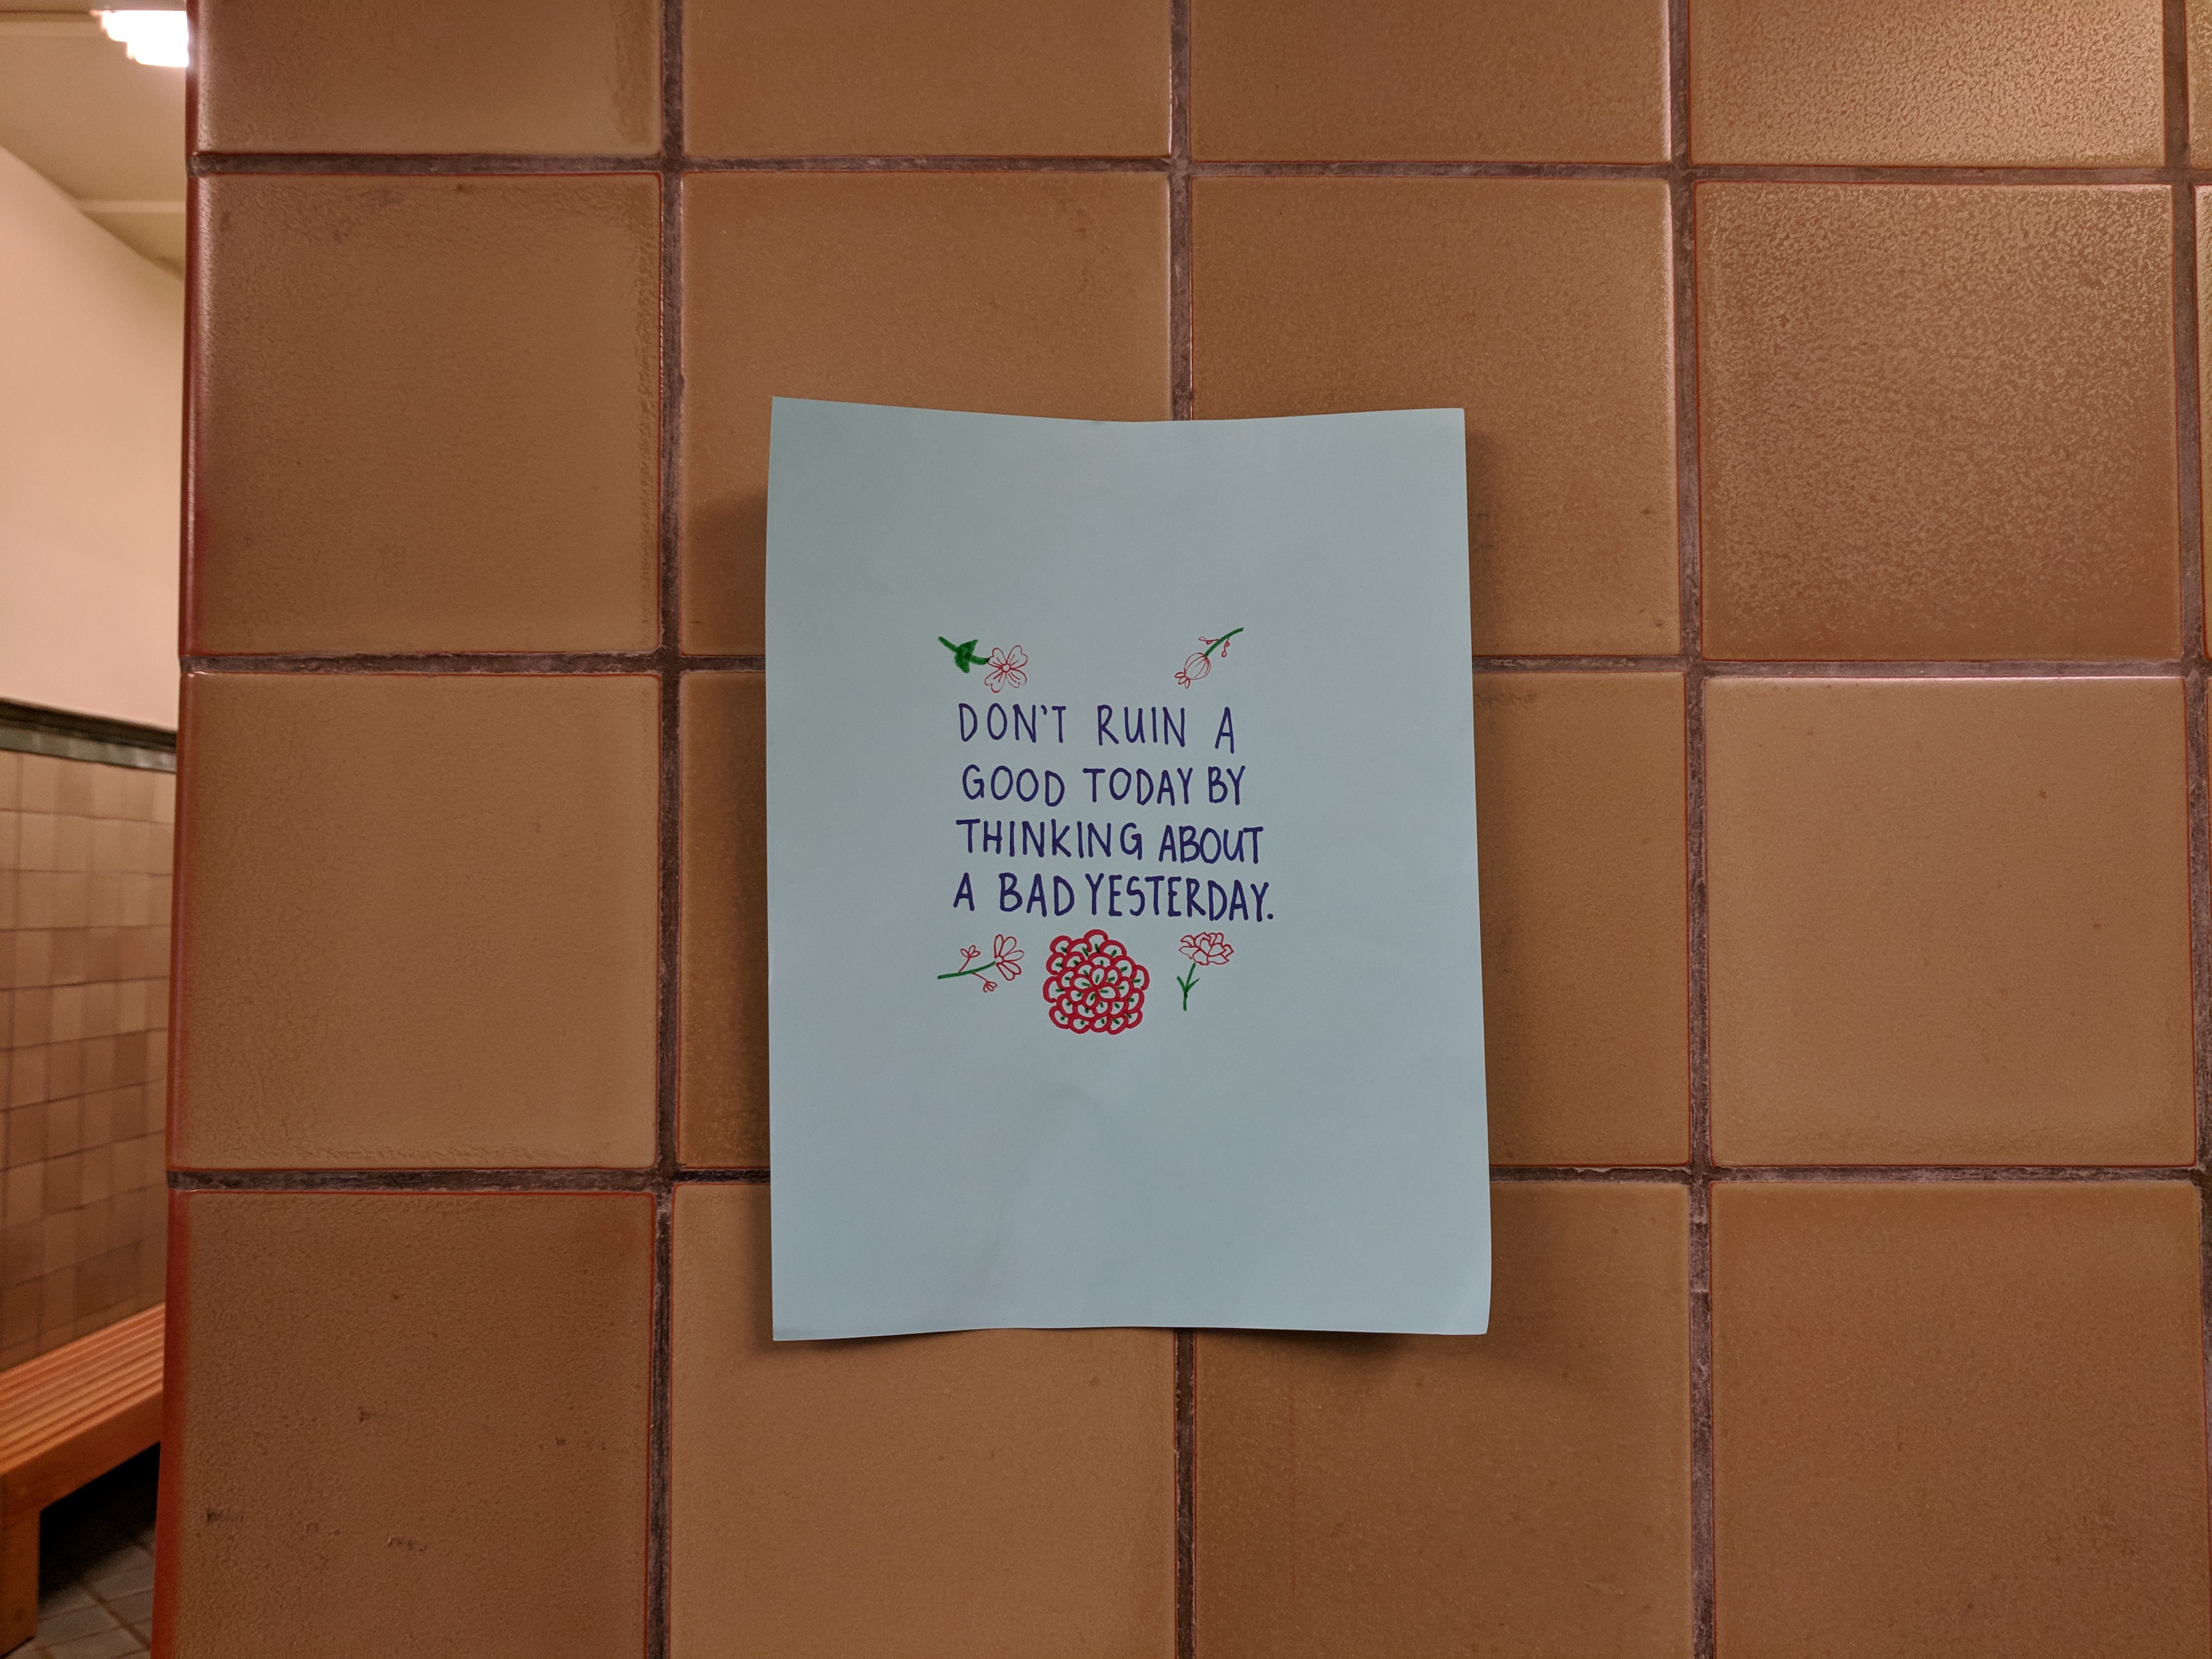 DON'T RUIN A
GOOD TODAY BY
THINKING ABOUT
A BAD YESTERDAY.